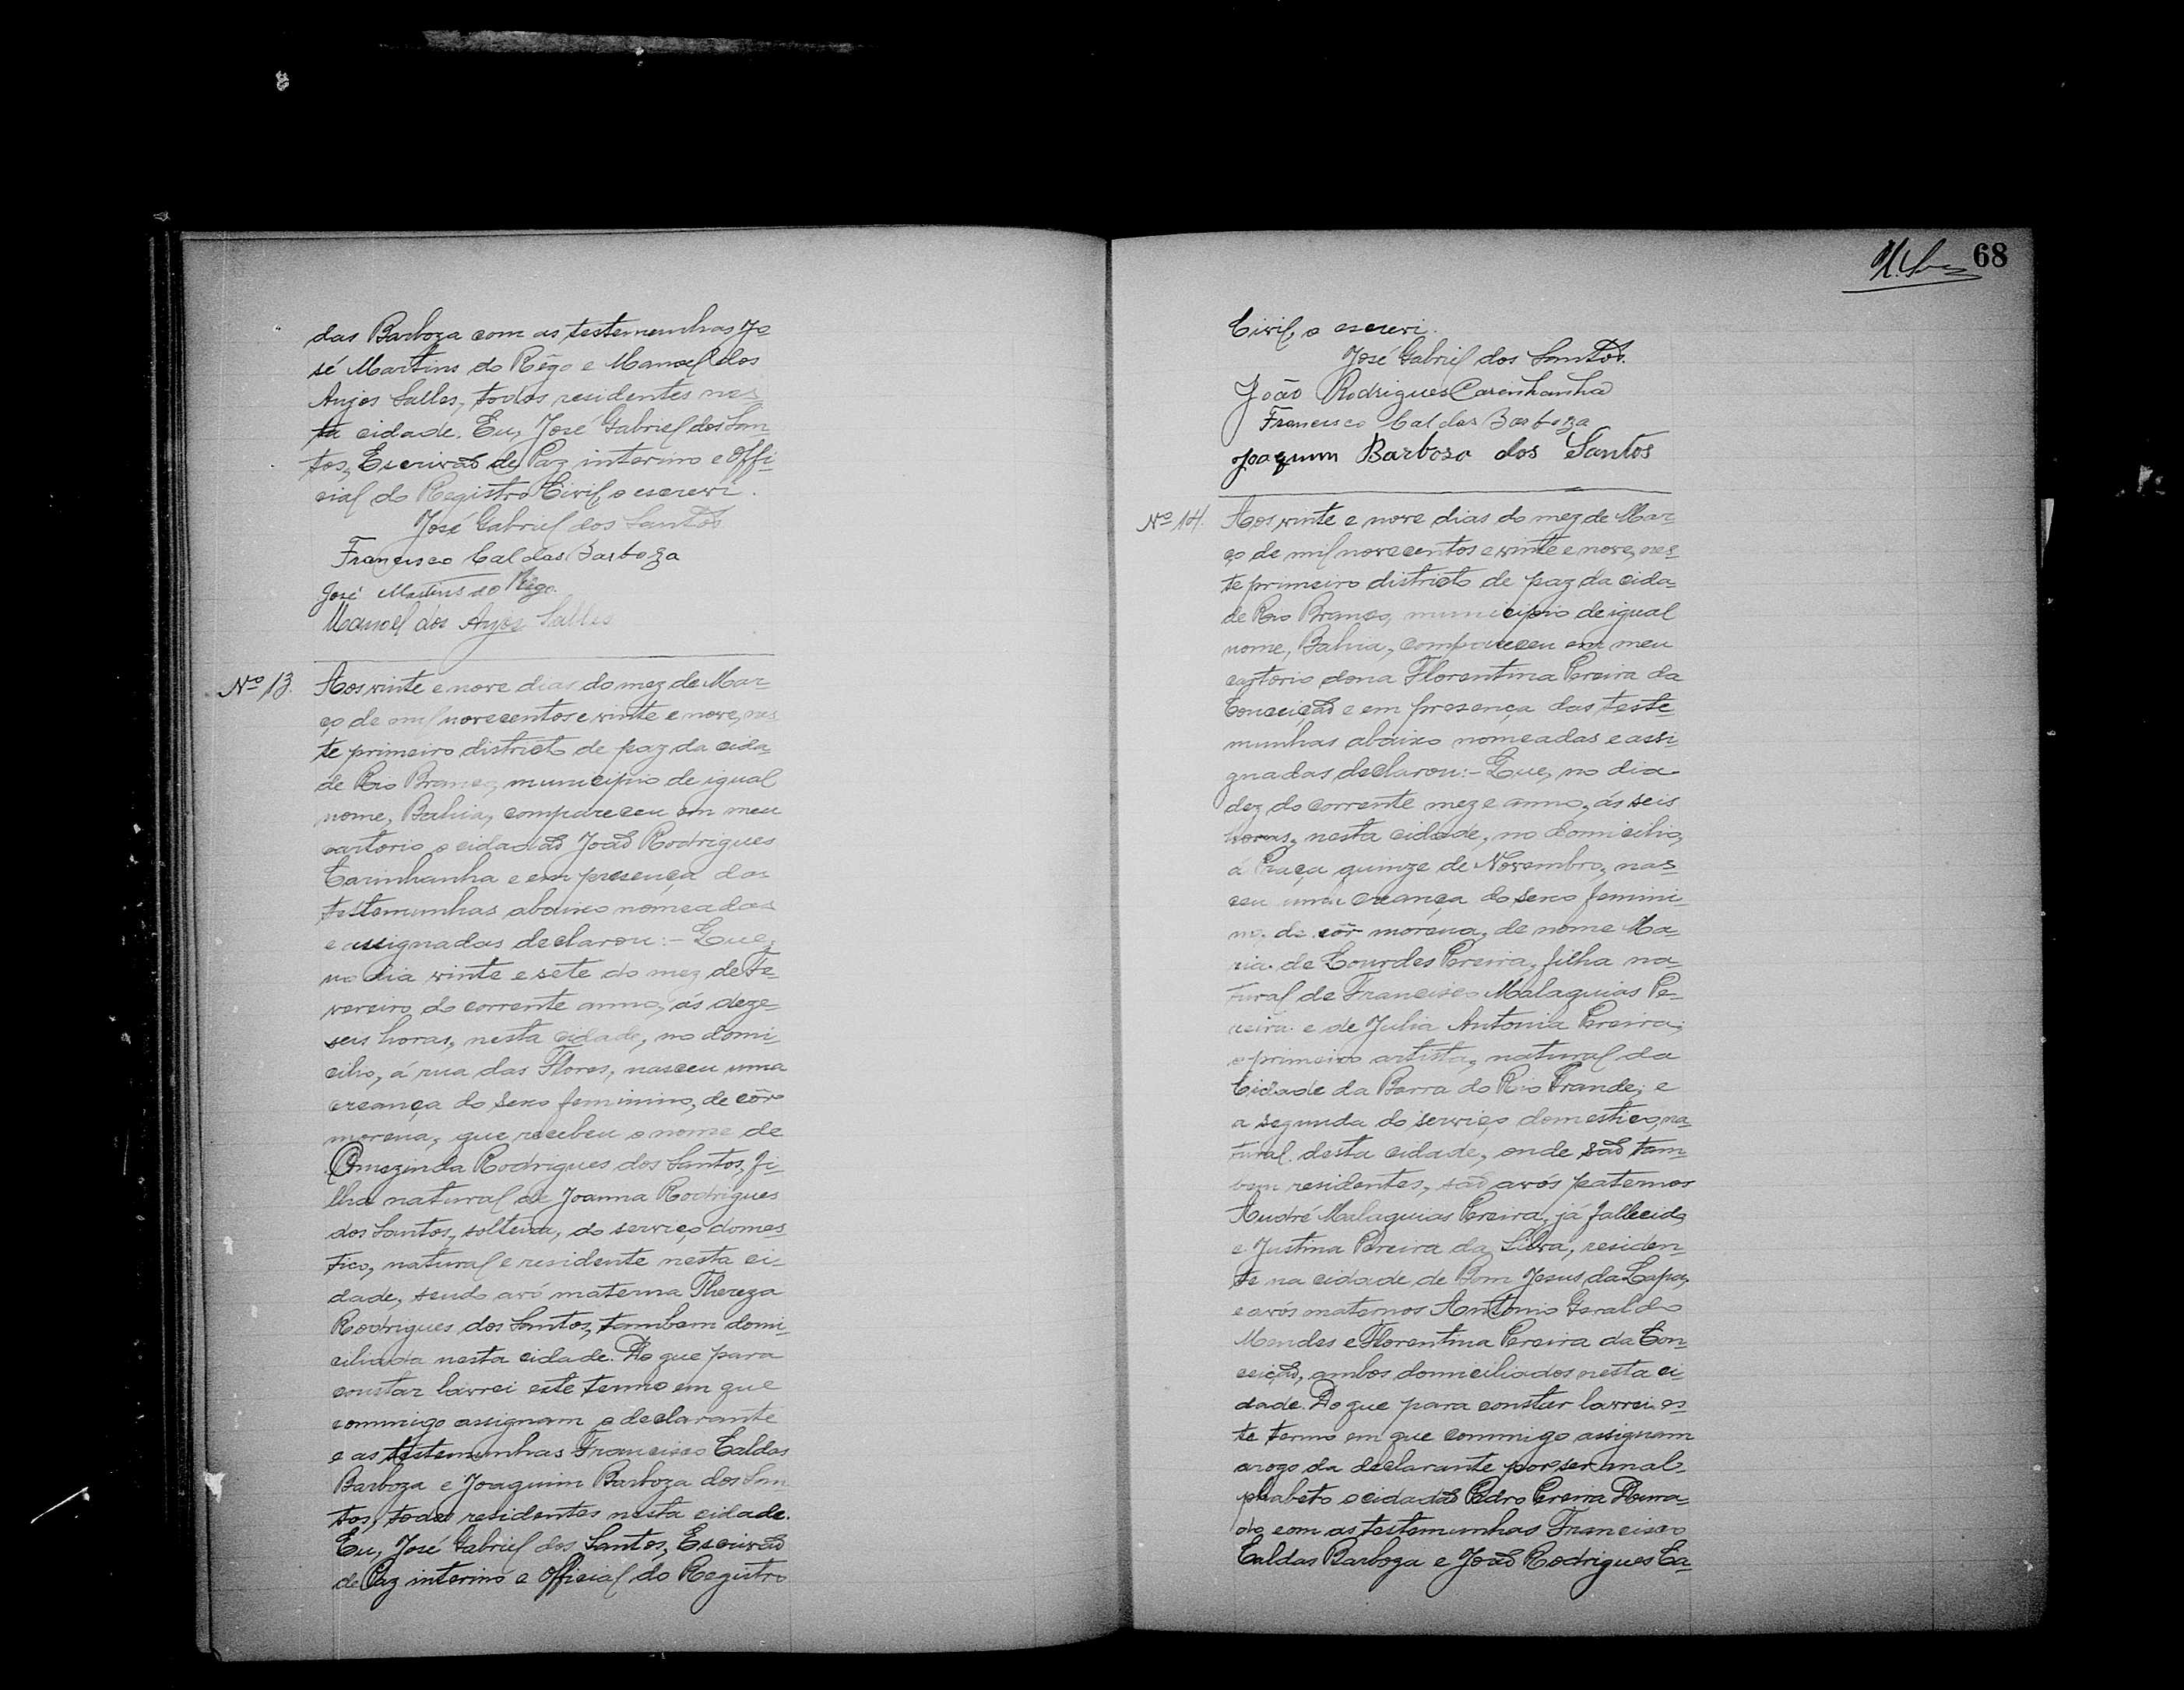 das Barboza com as testemunhas Jo
sé Martins do Rêgo e Manoel dos
Anjos Salles, todos residentes nes
ta cidade. Eu, José Gabriel dos San
tos, Escrivão de Paz interino e Offi-
cial do Registro Civil, o escrevi.
José Gabriel dos Santos
Francisco Caldas Barboza
José Martins do Rêgo.
Manoel dos Anjos Salles
Nº 13. Aos vinte e nove dias do mez de Mar-
ço de mil novecentos e vinte e nove, nes
te primeiro districto de paz da cida-
de Rio Branco, municipio de igual
nome, Bahia, compareceu em meu
cartorio o cidadão João Rodrigues
Carinhanha e em presença das
testemunhas abaixo nomeadas
e assignadas declarou:- Que,
no dia vinte e sete do mez de Fe-
vereiro do corrente anno, ás deze-
seis horas, nesta cidade, no domi
cilio, á rua das Flores, nasceu uma
creança do sexo feminino, de côr
morena, que recebeu o nome de
Omezinda Rodrigues dos Santos, fi-
lha natural de Joanna Rodrigues
dos Santos, solteira, do serviço domes
tico, natural e residente nesta ci-
dade, sendo avó materna Thereza
Rodrigues dos Santos, tambem domi-
ciliada nesta cidade. Do que para
constar lavrei este termo em que
commigo assignam o declarante
e as testemunhas Francisco Caldas
Barboza e Joaquim Barboza dos San
tos, todos residentes nesta cidade.
Eu, José Gabriel dos Santos, Escrivão
de Paz interino e Official do Registro
68
Civil, o escrevi.
José Gabriel dos Santos.
João Rodrigues Carenhanha
Francisco Caldas Barboza
Joaquim Barboso dos Santos
Nº 14. Aos vinte e nove dias do mez de Mar
ço de mil novecentos e vinte e nove, nes
te primeiro districto de paz da cida-
de Rio Branco, municipio de igual
nome, Bahia, compareceu em meu
cartorio dona Florentina Pereira da
Conceição e em presença das teste-
munhas abaixo nomeadas e assi-
gnadas declarou:- Que, no dia
dez do corrente mez e anno, ás seis
horas, nesta cidade, no domicilio,
á Praça quinze de Novembro, nas-
ceu uma creança do sexo femini-
no, de côr morena, de nome Ma-
ria de Lourdes Pereira, filha na
tural de Francisco Malaquias Pe-
reira e de Julia Antonia Pereira;
o primeiro artista, natural da
Cidade da Barra do Rio Grande; e
a segunda do serviço domestico, na
tural desta cidade, onde são tam-
bem residentes, são avós paternos
André Malaquias Pereira, já fallecido
e Justina Pereira da Silva, residen-
te na cidade de Bom Jesus da Lapa,
e avós maternos Antonio Geraldo
Mendes e Florentina Pereira da Con-
ceição, ambos domiciliados nesta ci-
dade. Do que para constar lavrei es-
te termo em que commigo assignam
arogo da declarante por ser anal-
phabeto o cidadão Pedro Pereira Doura-
do com as testemunhas Francisco
Caldas Barboza e João Rodrigues Ca-